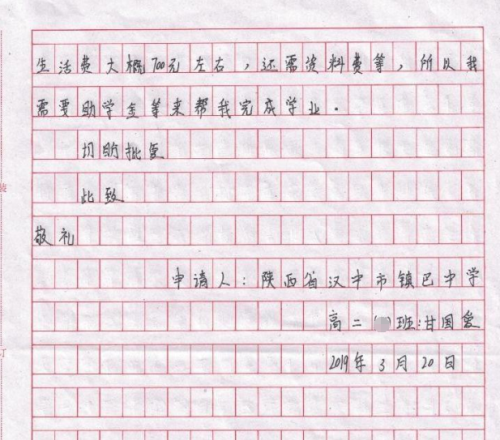 生活费大概700元左右，还需资料费等，所以我
需要助学金等来帮我完成学业．
切盼批复
此致
敬礼
申请人：陕西省汉中市镇巴中学
高二( )班:甘国
2019年3月20日
装
订